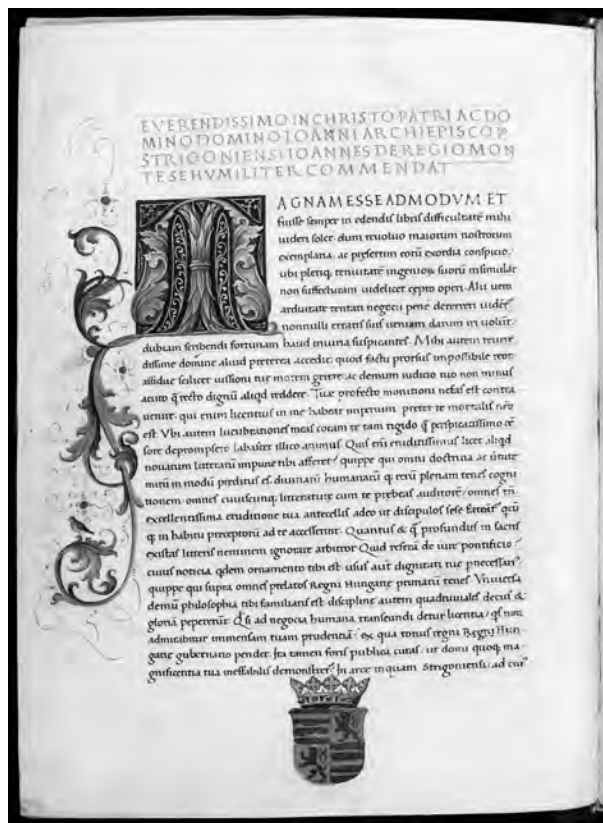 EVERENDISSIMO IN CHRISTO PATRI AC DO
MINO DOMINO IOANNI ARCHIEPISCOP
STRIGONIENSI IOANNES DE REGIOMON
TE SE HVMILITER COMMENDAT
MAGNAM ESSE ADMODVM ET
fuisse semper in edendis libris difficultatē mihi
uideri solet dum reuoluo maiorum nostrorum
exemplaria ac presertim eorū exordia conspicio,
ubi pleriq; tenuitatē ingenioꝝ suorū insimulāt
non suffecturam uidelicet cepto operi. Alii uem
arduitate tentati negocii pene deterreri uidēt
nonnulli erratis suis ueniam darim in uolūt,
dubiam scribendi fortunam haud iniuria suspicantes. Mihi autem reuerē
dissime domine aliud preterea accedit, quod factu prorsus impossibile reor
assidue scilicet iussioni tue morem gerere ac demum iudicio tuo non minus
acuto q̄ recto dignū aliqd reddere. Tuæ profecto monitioni nefas est contra
uenire, qui enim licentius in me habeat imperium preter te mortaliū nēo
est. Vbi autem lucubrationes meas coram te tam rigido q̄ perspicatissimo cē
sore depromptero labascet illico animus. Quis enī eruditissimus licet aliqd
nouarum litterarū impune tibi afferet? quippe qui omni doctrina ac uirtute
mirū in modū preditus es. diuinarū humanarū q; rerū plenam tenes cogni
tionem. omnes cuiuscunq; litterature cum te prebeas auditorē, omnes tn̄
excellentissima eruditione tua antecellis adeo ut discipulos sese
q; in habitu preceptorū ad te accesserint. Quantus & q̄ profundus in sacris
existas litteris neminem ignorare arbitror. Quid referā de iure pontificio?
cuius noticia qdem ornamento tibi est. usus aut dignitati tue pnecessari
quippe qui supra omnes prelatos Regni Hungarie primatū tenes. Vniuersa
demū philosophia tibi familiaris est. discipline autem quadriuiales decus &
gloriā pepererūt. Qsi ad negocia humana transeundi detur licentia, qs non
admirabitur immensam tuam prudentiā? ex qua totius regni Regni Hun
garie gubernatio pendet. Ita tamen foris publica curas, ut domi quoq; ma
gnificentia tua ineffabilis demonstret. In arce inquam Strigoniensi, ad cui